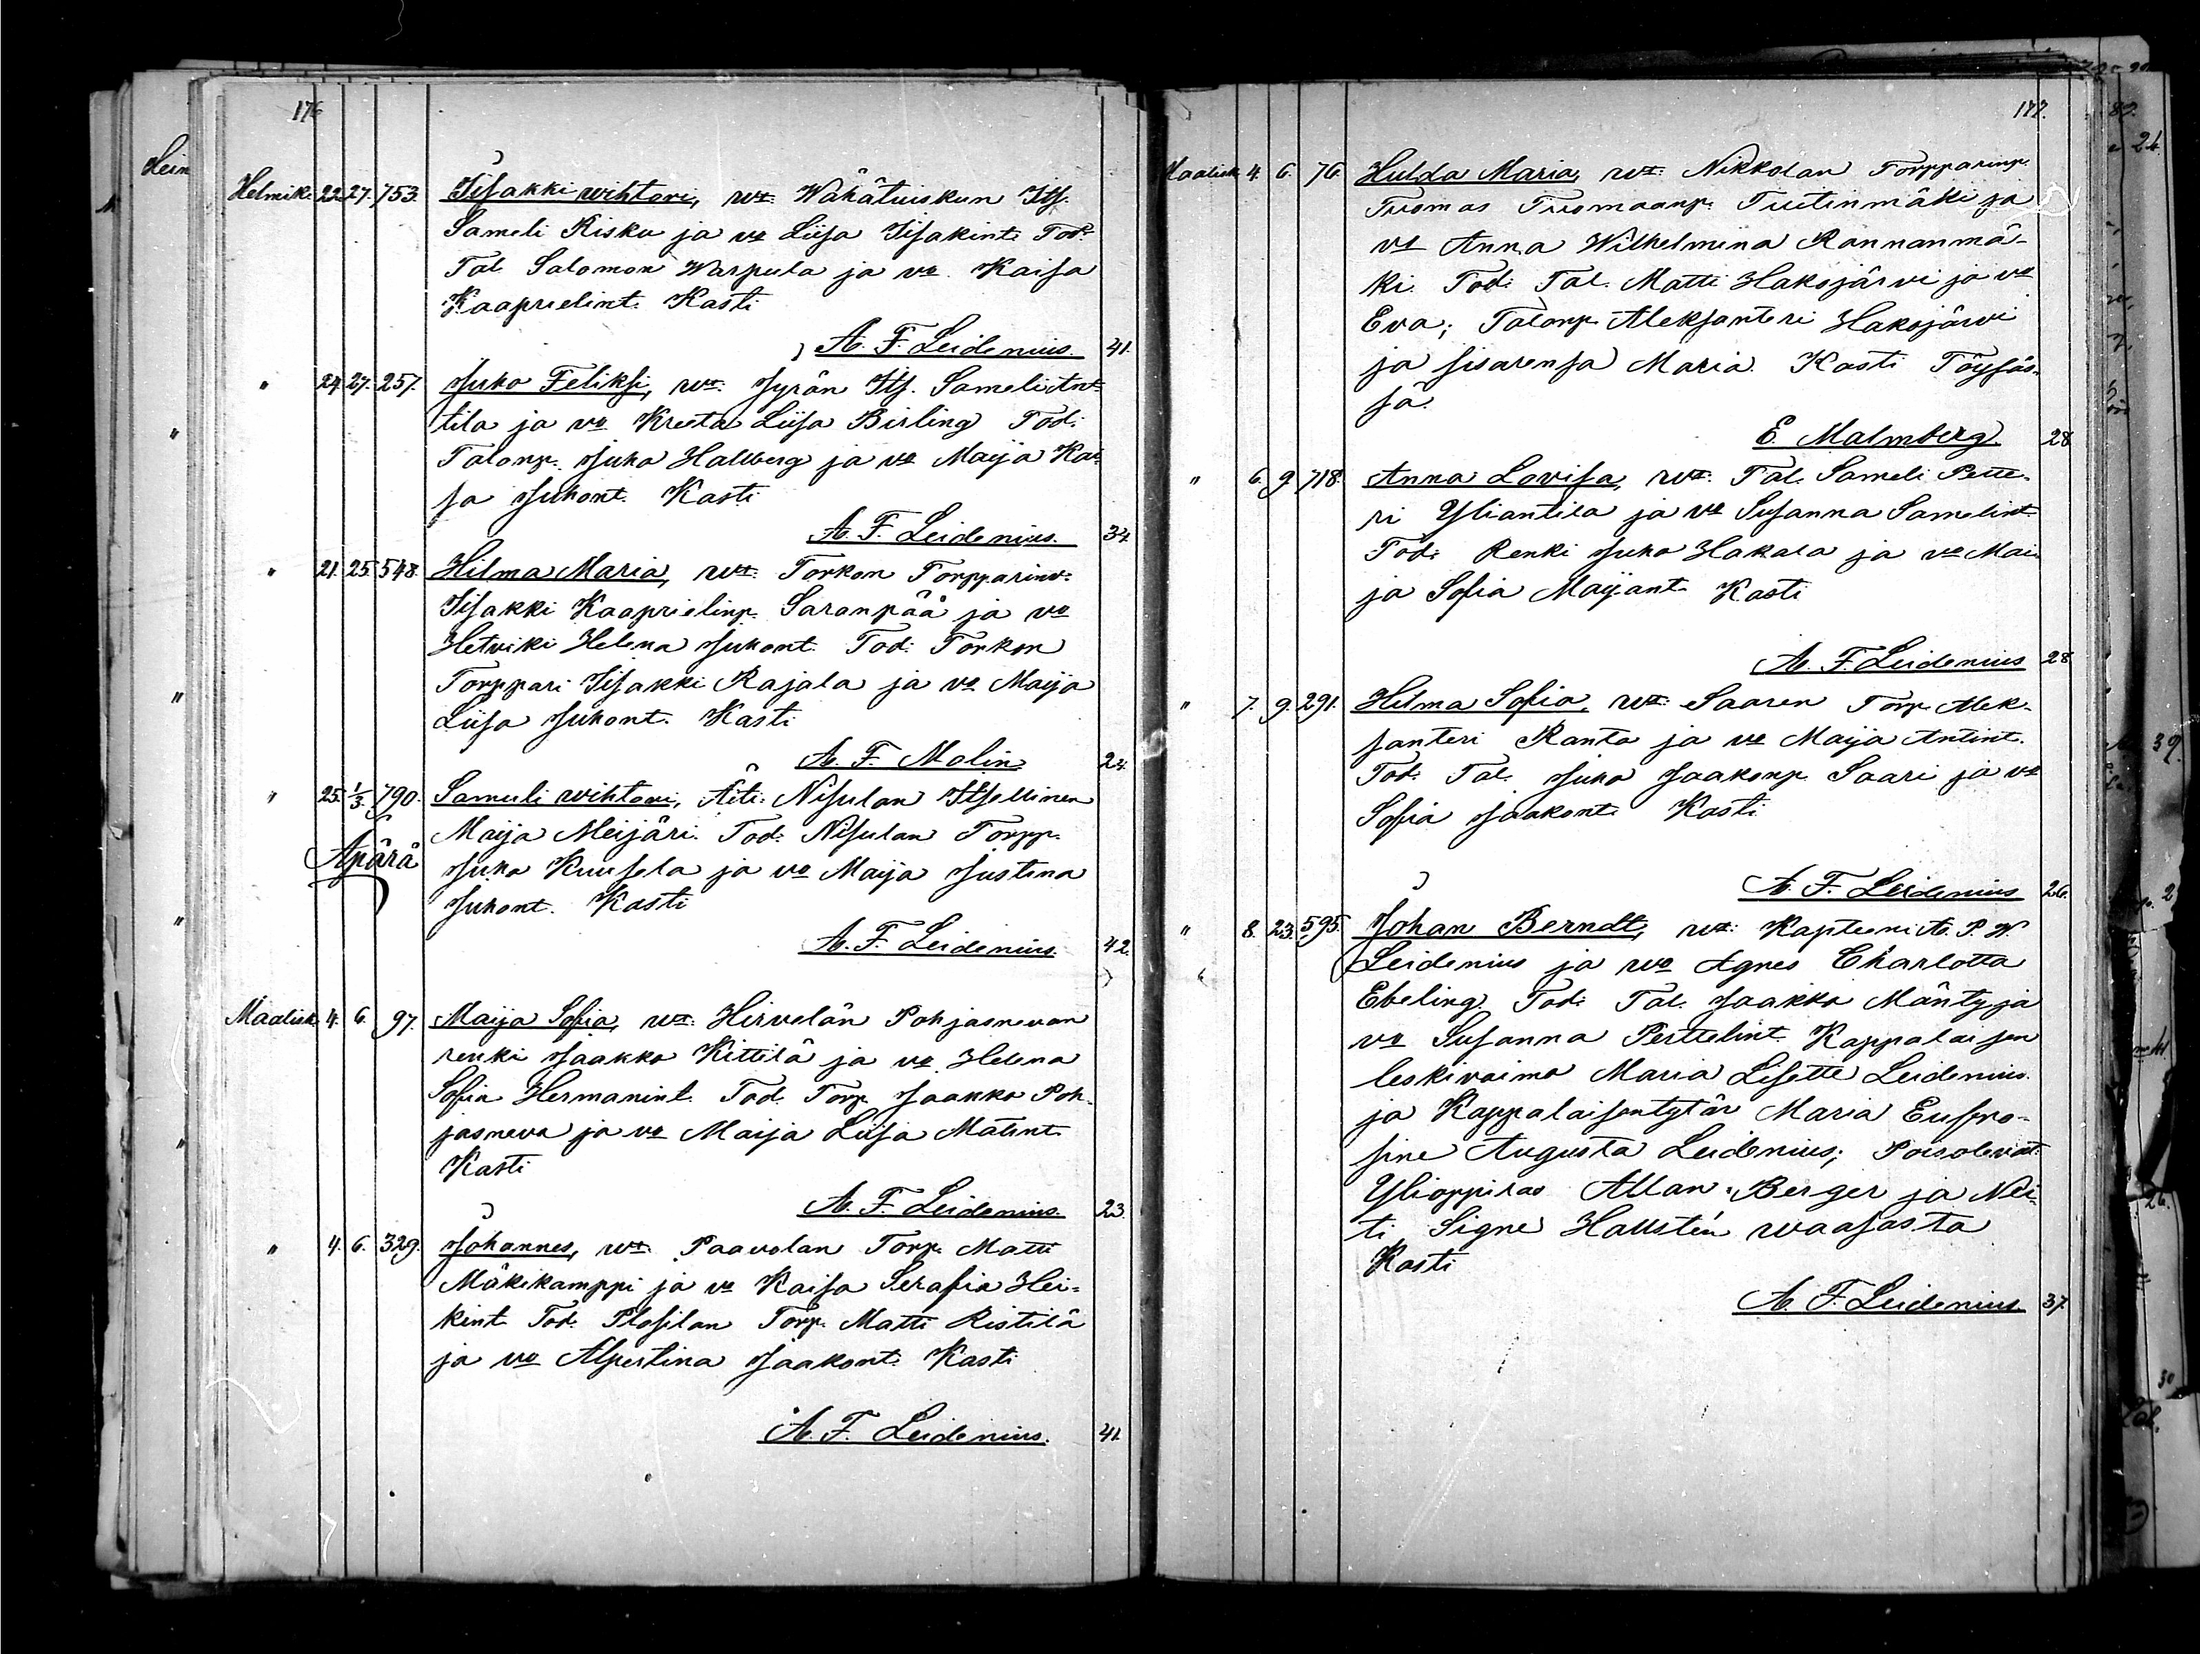 176
Helmik. 22. 27. 753. Iisakki wihtori, wt. Wähätuiskun Its.
Sameli Risku ja vo Liisa Iisakint. Tod.
Tal. Salomon Warpula ja vo Kaisa
Kaaprielint. Kasti
A. F. Leidenius. 41.
" 24. 27. 257. Juho Feliksi, wt. Jyrän Its. Sameli Ant-
tila ja vo Kreeta Liisa Birling Tod:
Talonp. Juho Hallberg ja vo Maija Kai-
sa Juhont. Kasti
A. F. Leidenius. 34.
" 21. 25. 548. Hilma Maria, wt. Torkon Torpparinv.
Iisakki Kaaprielinp. Saranpää ja vo
Hetviki Helena Juhont. Tod: Torkon
Torppari Iisakki Rajala ja vo Maija
Liisa Juhont. Kasti
A. F. Molin 24.
" 25. 1/3. 790. Samuli wihtori, Äiti: Nisulan Itsellinen
Maija Meijäri. Tod: Nisulan Torpp.
Äpärä Juho Kuusela ja vo Maija Justina
Juhont. Kasti
A. F. Leidenius. 42.
Maalisk. 4. 6. 97. Maija Sofia, wt. Hirvelän Pohjasnevan
renki Jaakko Kittilä ja vo Helena
Sofia Hermanint. Tod. Torp. Jaakko Poh-
jasneva ja vo Maija Liisa Matint.
Kasti
A. F. Leidenius. 23.
" 4. 6. 329. Johannes, wt. Paavolan Torp. Matti
Mäkikamppi ja vo Kaisa Serafia Hei-
kint. Tod: Plosilan Torp. Matti Ristilä
ja vo Alpertina Jaakont. Kasti
A. F. Leidenius. 41.
177.
Maalisk. 4. 6. 76. Hulda Maria, wt. Nikkolan Torpparinp.
Tuomas Tuomaanp. Tuetinmäki ja
vo Anna Wilhelmina Rannanmä-
ki. Tod: Tal. Matti Hakojärvi ja vo
Eva; Talonp. Aleksanteri Hakojärvi
ja sisarensa Maria. Kasti Töysäs-
sä.
E. Malmberg 28.
" 6. 9. 718. Anna Lovisa, wt. Tal. Sameli Pette-
ri Yliantila ja vo Susanna Samelint.
Tod: Renki Juho Hakala ja vo Mai-
ja Sofia Maijant. Kasti
A. F. Leidenius 28
" 7. 9. 291. Hilma Sofia, wt. Saaren Torp. Alek-
santeri Ranta ja vo Maija Antint.
Tod: Tal. Juho Jaakonp. Saari ja vo
Sofia Jaakont. Kasti
A. F. Leidenius 26.
" 8. 23. 595. Johan Berndt, wt: Kapteeni A. P. W.
Leidenius ja wo Agnes Charlotta
Ebeling. Tod: Tal. Jaakko Mänty ja
vo Susanna Perttelint. Kappalaisen
leskivaimo Maria Lisette Leidenius
ja Kappalaisentytär Maria Eufro-
sine Augusta Leidenius; Poisolevat:
Ylioppilas Allan Berger ja Nei-
ti Signe Hallstén waasasta
Kasti
A. F. Leidenius 37.